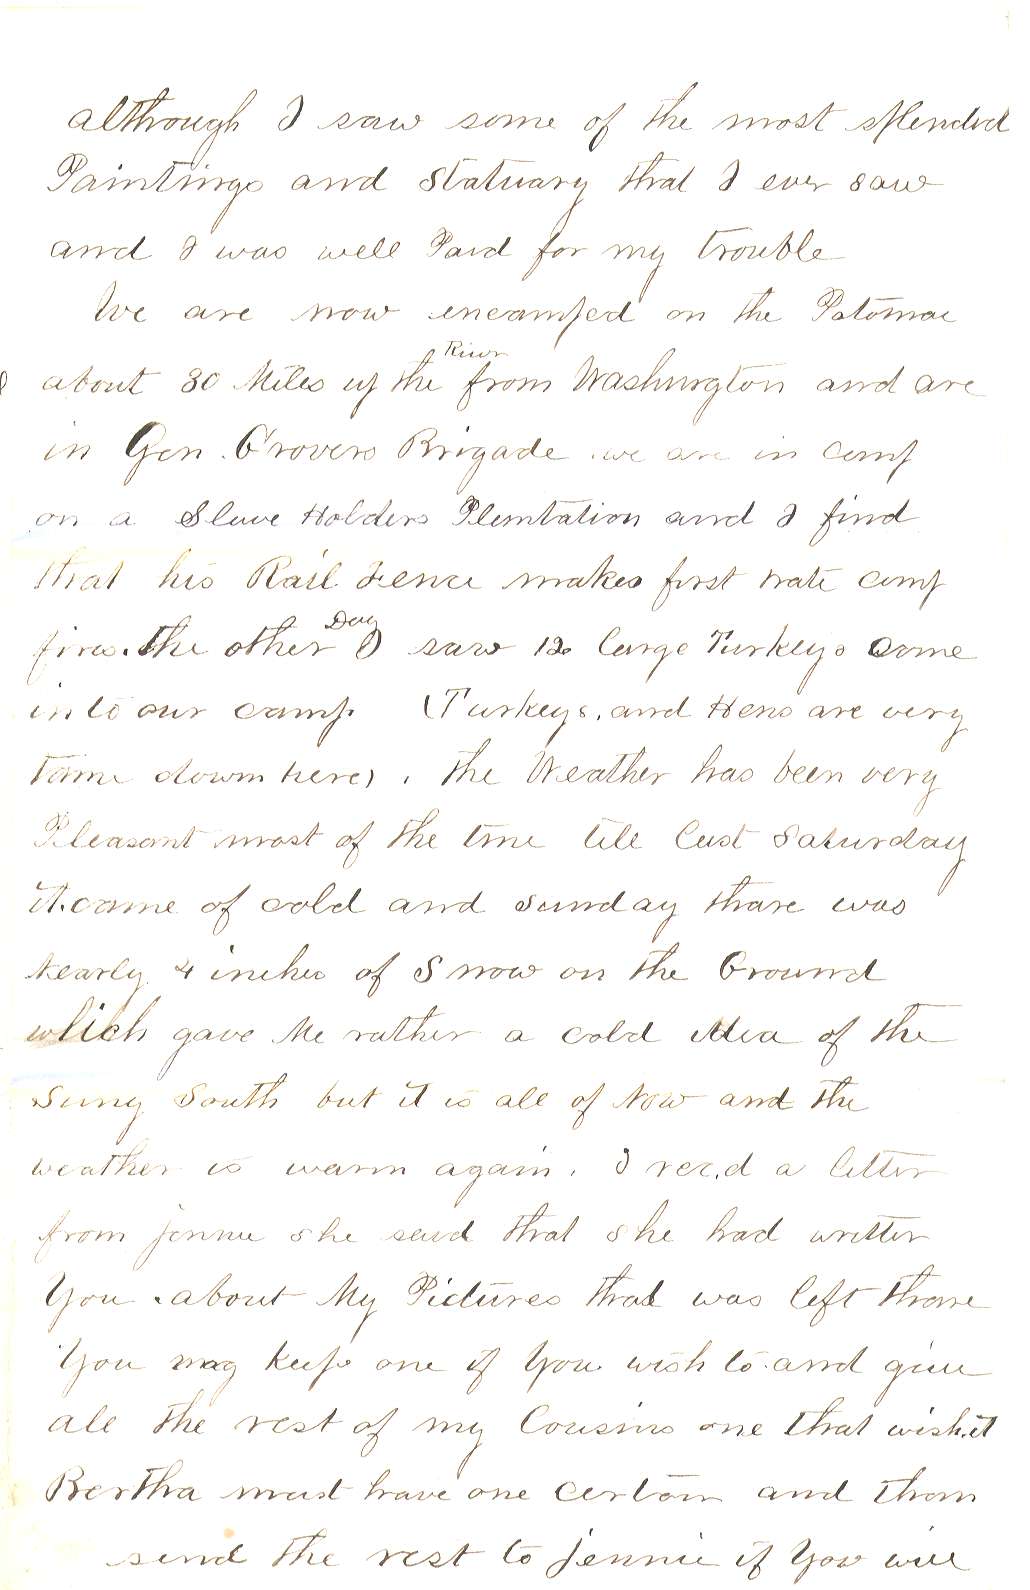 although I saw some of the most splended
Paintings and Statuary that I ever saw
and I was well Paid for my trouble
We are now encamped on the Patomac
River
about 30 Miles up the from Washington and are
in Gen. Grovers Brigade we are in camp
on a Slave Holders Plantation and I find
that his Rail Fence makes first rate camp
Day
fires. the other I saw 12 large Turkeys come
into our camp (Turkeys, and Hens are very
tame down here). the Weather has been very
Pleasant most of the time till last Saturday
it. came of cold and Sunday thare was
Nearly 4 inches of Snow on the Ground
which gave Me rather a cold idea of the
Suny South but it is all of Now and the
weather is warm again. I rec.d a letter
from Jennie she said that she had writter
You about My Pictures that was left thare
You may keep one if You wish to and give
all the rest of my Cousins one that wish it
Bertha must have one certain and than
send the rest to Jennie if You will